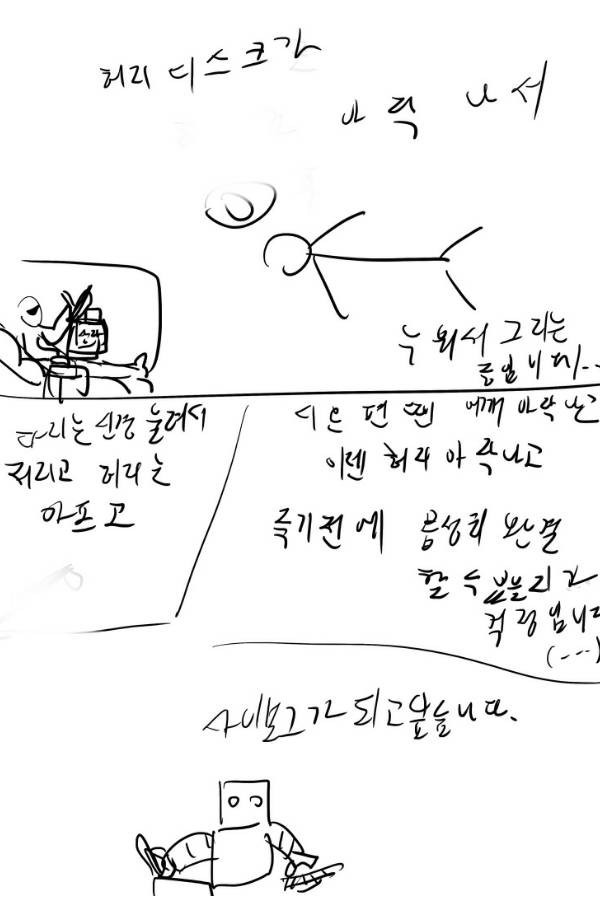 허리 디스크가
아작 나서
누워서 그리는
중입니다...
다리는 신경 눌려서
저리고 허리는
아프고
어깨 아작 나고
이젠 허리 아작나고
죽기전에 완결
할 수
걱정입니다
(...)
사이보그가 되고싶습니다.